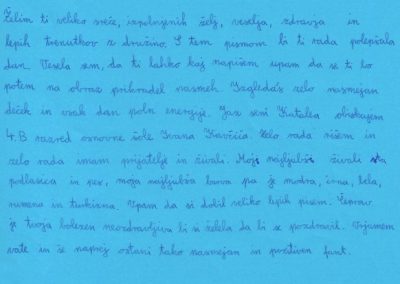 Želim ti veliko sreče, izpolnjenih želj, veselja, zdravja in
lepih trenutkov z družino. S tem pismom bi ti rada polepšala
dan. Vesela sem, da ti lahko kaj napišem upam da se ti bo
potem na obraz prikradel nasmeh. Izgledaš zelo nasmejan
deček in vsak dan poln energije. Jaz sem Katalea obiskujem
4. B razred osnovne šole Ivana Kavčiča. Zelo rada rišem in
zelo rada imam prijatelje in živali. Moji najljubši živali sta
podlasica in pes, moja najljubša barva pa je modra, črna, bela,
rumena in turkizna. Upam da si dobil veliko lepih pisem. Čeprav
je tvoja bolezen neozdravljiva bi si želela da bi se pozdravil. Verjamem
vate in še naprej ostani tako nasmejan in pozitiven fant.